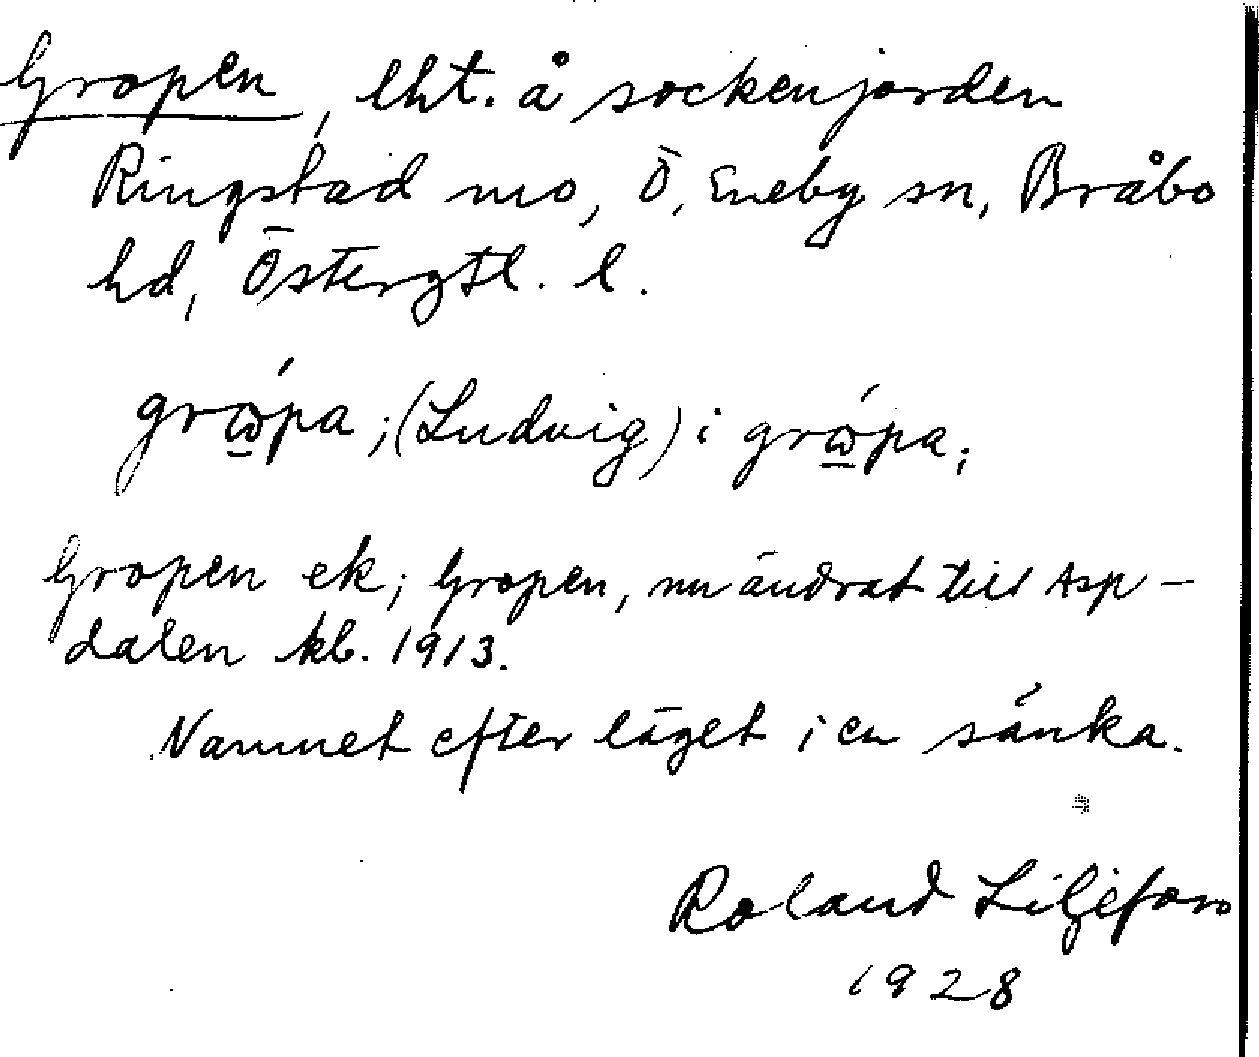 Gropen, lht. å sockenjorden
Ringstad mo, Ö. Eneby sn, Bråbo
hd, Östergtl. l.
grώ̲pa; (Ludvig) i grώ̲pa;
Gropen ek; Gropen, nu ändrat till Asp-
dalen kb. 1913.
Namnet efter läget i en sänka.
Roland Liljefors
1928